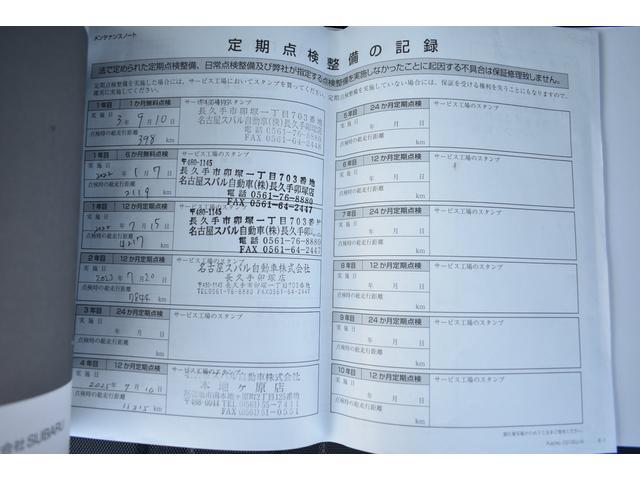 メンテナンスノート
定期点検整備の記録
法で定められた定期点検整備、日常点検整備及び弊社が指定する点検整備を実施しなかったことに起因する不具合は保証修理致しません。
定期点検整備を実施した場合には、サービス工場においてスタンプを貰ってください。定期点検整備を実施していない場合には、保証を受ける権利を失うこともありますので、
確実に実施してください。
1年目 1か月無料点検
実施日
3年 9月 10日
点検時の総走行距離
398 km
サービス工場のスタンプ
長久手市卯塚一丁目703番地
名古屋スバル自動車(株)長久手卯塚店
電話 0561-76-8880
FAX 0561-64-2447
1年目 6か月無料点検
実施日
2022年 1月 7日
点検時の総走行距離
2119 km
サービス工場のスタンプ
〒480-1145
長久手市卯塚一丁目703番地
名古屋スバル自動車(株)長久手卯塚店
電話 0561-76-8880
FAX 0561-64-2447
1年目 12か月定期点検
実施日
年 7月 15日
点検時の総走行距離
km
〒480-1145
長久手市卯塚一丁目703番地
名古屋スバル自動車(株)長久手卯塚店
電話 0561-76-8880
FAX 0561-64-2447
2年目 12か月定期点検
実施日
2023年 7月 20日
点検時の総走行距離
7844 km
名古屋スバル自動車株式会社
長久手卯塚店
〒480-1145 長久手市卯塚一丁目703番地
TEL0561-76-8880 FAX0561-64-2447
3年目 24か月定期点検
実施日
年 月 日
点検時の総走行距離
km
サービス工場のスタンプ
4年目 12か月定期点検
実施日
2025年 7月 10日
点検時の総走行距離
11315 km
サービス工場のスタンプ
名古屋スバル自動車株式会社
本地ヶ原店
〒488-0044 TEL(0561)55-7411
FAX(0561)51-0551
5年目 24か月定期点検
実施日
年 月 日
点検時の総走行距離
km
サービス工場のスタンプ
6年目 12か月定期点検
実施日
年 月 日
点検時の総走行距離
km
サービス工場のスタンプ
7年目 24か月定期点検
実施日
年 月 日
点検時の総走行距離
km
サービス工場のスタンプ
8年目 12か月定期点検
実施日
年 月 日
点検時の総走行距離
km
サービス工場のスタンプ
9年目 24か月定期点検
実施日
年 月 日
点検時の総走行距離
km
サービス工場のスタンプ
10年目 12か月定期点検
実施日
年 月 日
点検時の総走行距離
km
サービス工場のスタンプ
会社SUBARU